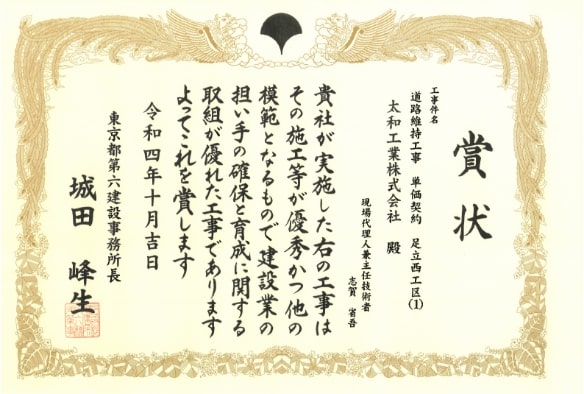 賞状
工事件名
道路維持工事 単価契約 足立西工区(1)
太和工業株式会社 殿
現場代理人兼主任技術者
志賀 省吾
貴社が実施した右の工事は
その施工等が優秀かつ他の
模範となるもので建設業の
担い手の確保と育成に関する
取組が優れた工事であります
よってこれを賞します
令和四年十月吉日
東京都第六建設事務所長
城田 峰生